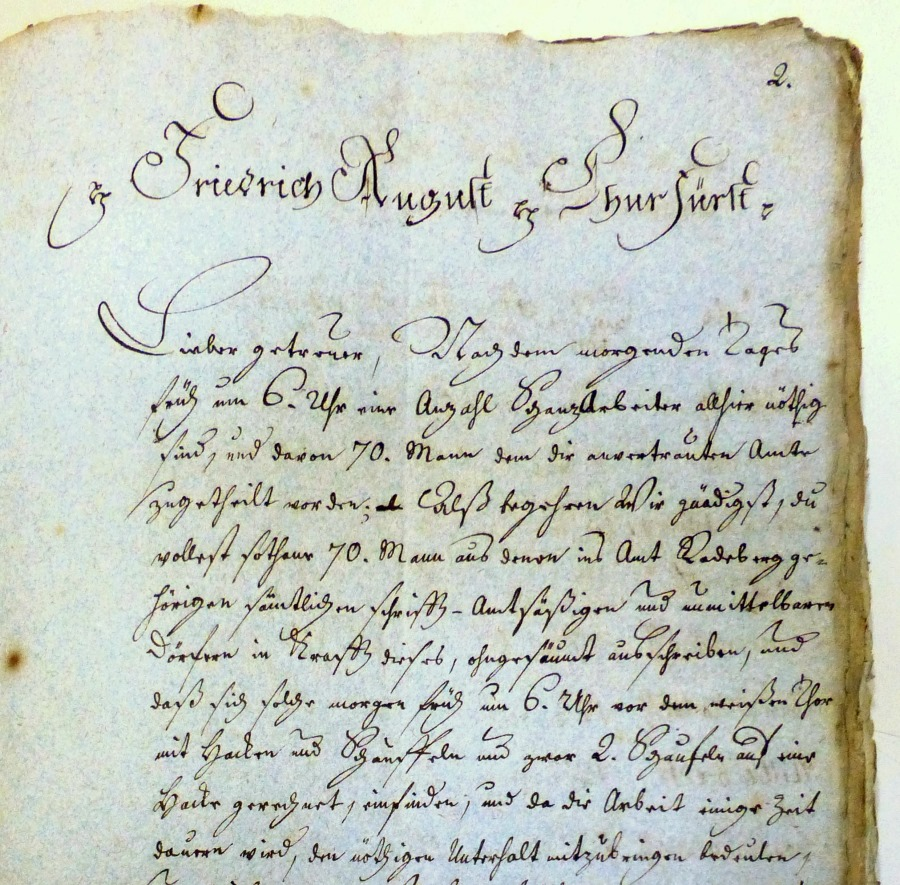 2.
Friedrich August Churfürst
Lieber getreuer, Nachdem morgenden Tages
früh um 6. Uhr eine Anzahl Schanzarbeiter allhier nöthig
sind, und davon 70. Mann dem dir anvertrauten Amte
zugetheilt worden; Alß begehren Wir gnädigst, du
wollest sothane 70. Mann aus denen ins Amt Radeberg ge-
hörigen sämtlichen schrifft- Amtsäßigen und unmittelbaren
Dörfern in Krafft dieses, ohngesäumt ausschreiben, und
daß sich solche morgen früh um 6. Uhr vor dem weißen Thor
mit Hacken und Schauffeln und zwar 2. Schaufeln auf eine
Hacke gerechnet, einfinden, und da die Arbeit einige Zeit
dauern wird, den nöthigen Unterhalt mitzubringen bedeuten,